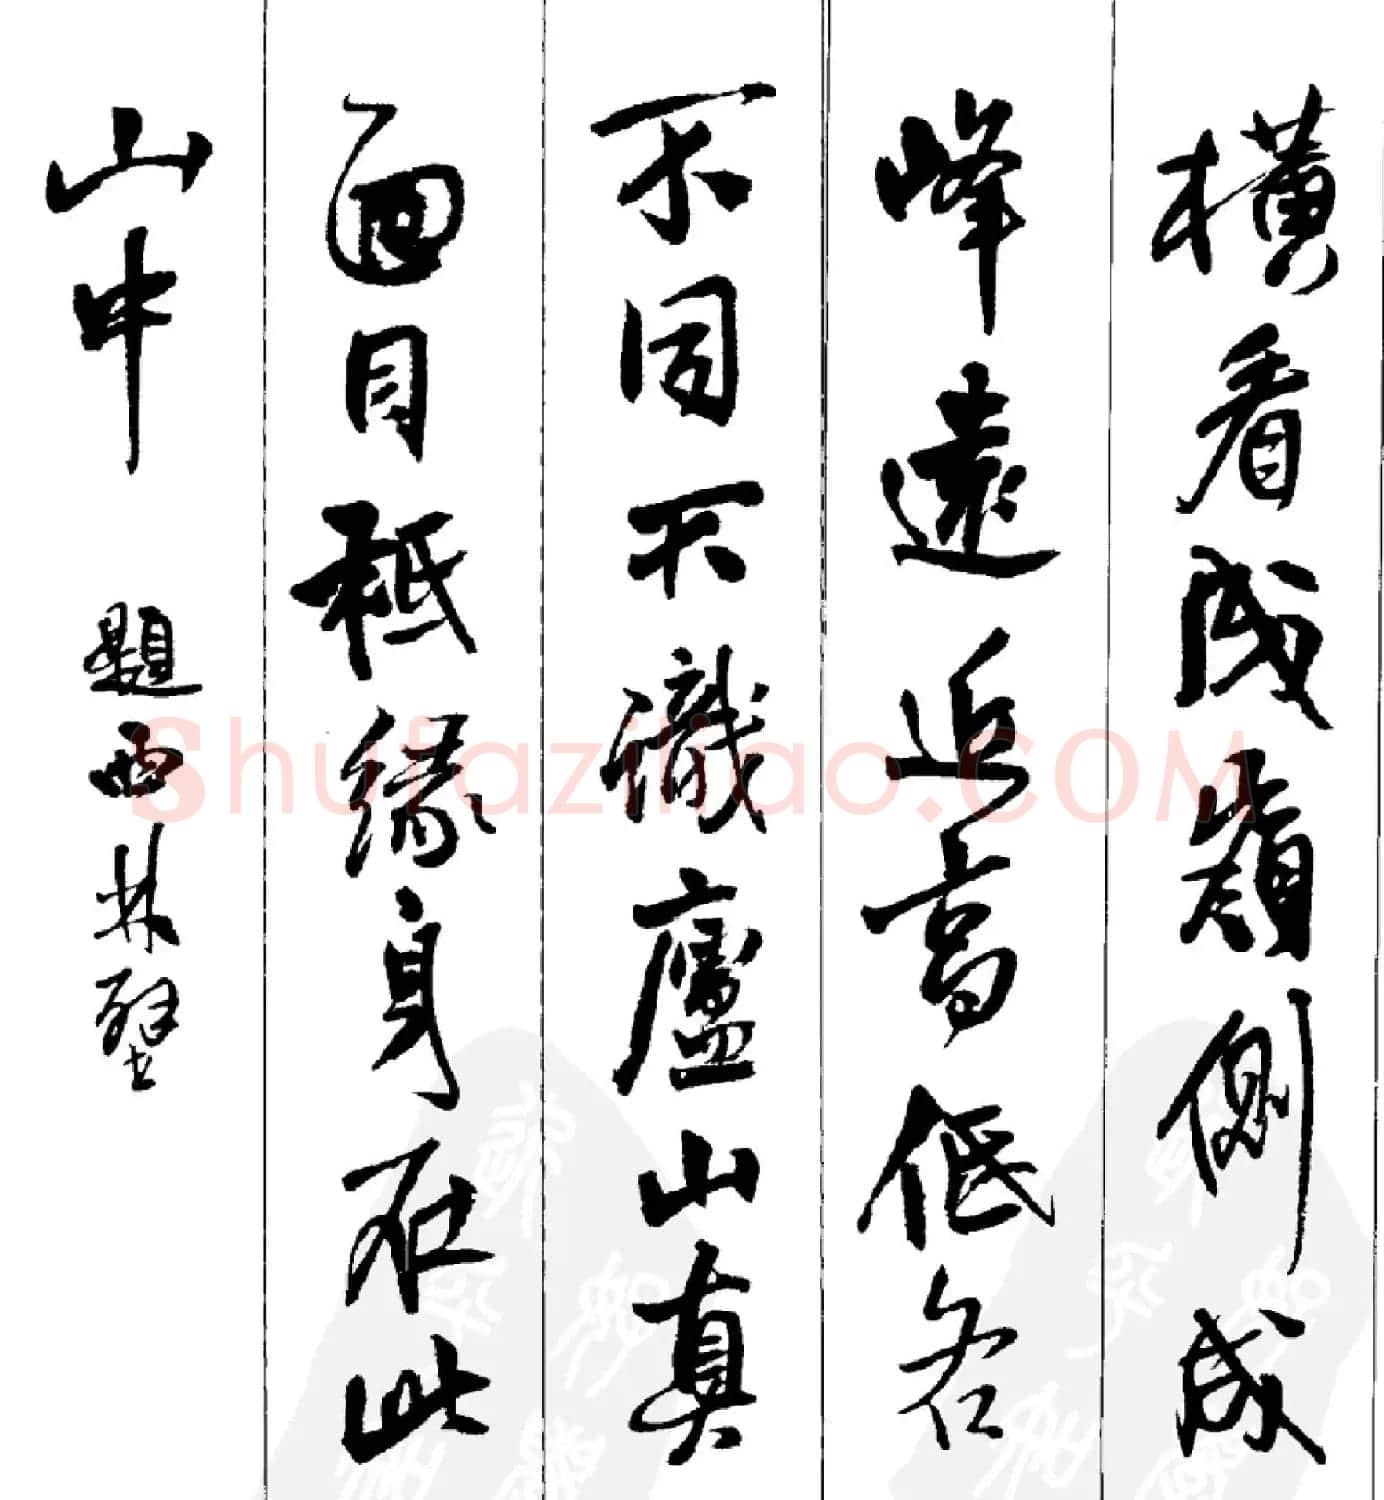 橫看成嶺側成
峰遠近高低各
不同不識廬山真
面目秖緣身在此
山中 題西林壁
Shufaziliao.COM